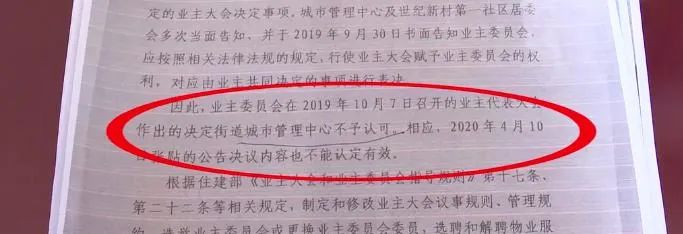 定的业主大会决定事项。城市管理中心及世纪新村第一社区居委
会多次当面告知、并于2019年9月30日书面告知业主委员会，
应按照相关法律法规的规定，行使业主大会赋予业主委员会的权
利，对应由业主共同决定的事项进行表决。
因此，业主委员会在2019年10月7日召开的业主代表大会
作出的决定街道城市管理中心不予认可。相应，2020年4月10
日张贴的公告决议内容也不能认定有效。
根据住建部《业主大会和业主委员会指导规则》第十七条、
第二十二条等相关规定，制定和修改业主大会议事规则、管理规
约、选举业主委员会或更换业主委员会委员，选聘和解聘物业服